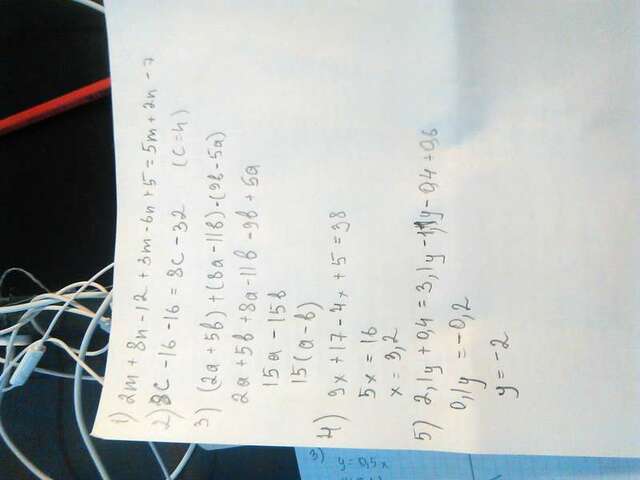 1) 2m + 8n - 12 + 3m - 6n + 5 = 5m + 2n - 7
2) 8c - 16 - 16 = 8c - 32 (c = 4)
3) (2a + 5b) + (8a - 11b) - (9b - 5a)
2a + 5b + 8a - 11b - 9b + 5a
15a - 15b
15(a - b)
4) 9x + 17 - 4x + 5 = 38
5x = 16
x = 3,2
5) 2,1y + 0,4 = 3,1y - 1,1y - 0,4 + 0,6
0,1y = -0,2
y = -2
3) y = 0,5x